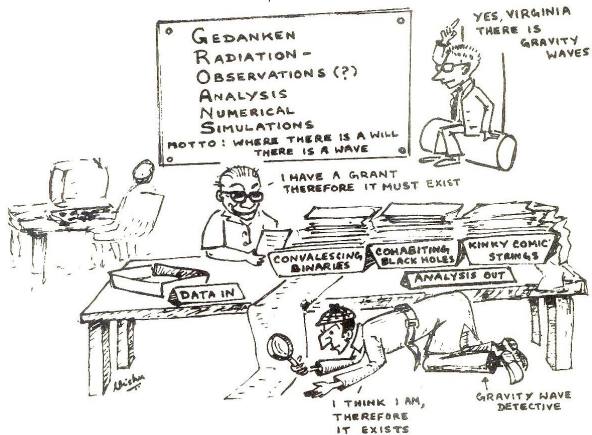 GEDANKEN
RADIATION-
OBSERVATIONS (?)
ANALYSIS
NUMERICAL
SIMULATIONS
MOTTO: WHERE THERE IS A WILL
THERE IS A WAVE
YES, VIRGINIA
THERE IS
GRAVITY
WAVES
I HAVE A GRANT
THEREFORE IT MUST EXIST
CONVALESCING
BINARIES
COHABITING
BLACK HOLES
KINKY COMIC
STRINGS
ANALYSIS OUT
DATA IN
I THINK I AM,
THEREFORE
IT EXISTS
GRAVITY WAVE
DETECTIVE